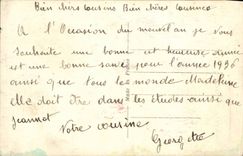 Bien chers Cousins Bien chères Cousines
A l'Occasion du nouvel an je vous
souhaite une bonne et heureuse année
et une bonne santé pour l'année 1936
ainsi que tous le monde Madeleine
elle doit être dans les études ainsi que
Jeannot
Votre cousine
Georgette